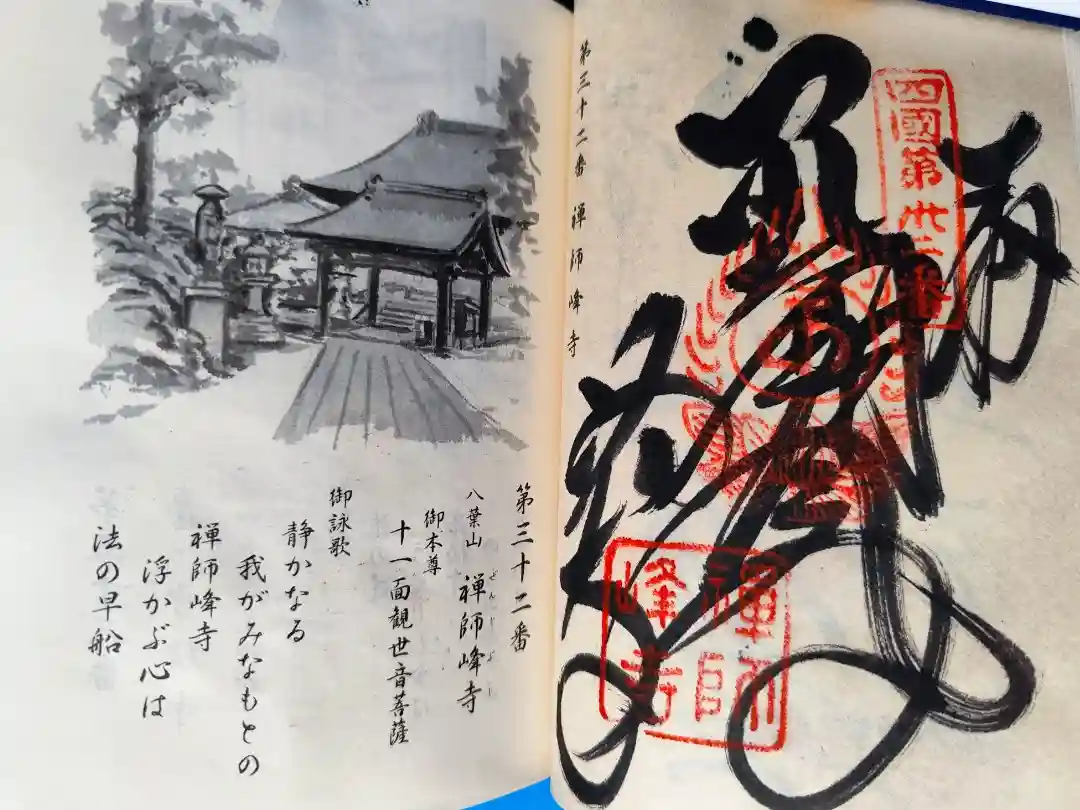 四國第卅二番
禪師
峰寺
第三十二番 禅師峰寺
第三十二番
八葉山 禅師峰寺
御本尊
十一面観世音菩薩
御詠歌
静かなる
我がみなもとの
禅師峰寺
浮かぶ心は
法の早船